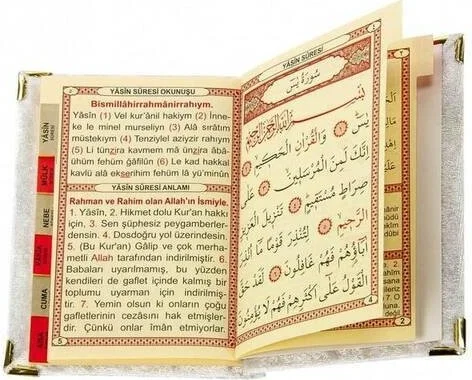 YÂSİN SÛRESİ OKUNUŞU
Bismillâhirrahmânirrahıym.
Yâsîn (1) Vel kur'ânil hakiym (2) İnne-
ke le minel murseliyn (3) Alâ sırâtım
müstekıym (4) Tenziylel aziyzir rahıym
(5) Li tünzira kavmem mâ ünzira âbâ-
ühüm fehüm ğâfilûn (6) Le kad hakkal
kavlü alâ ekserihim fehüm lâ yü'minûn
YÂSİN SÛRESİ ANLAMI
Rahman ve Rahim olan Allah'ın İsmiyle.
1. Yâsîn, 2. Hikmet dolu Kur'an hakkı
için, 3. Sen şüphesiz peygamberler-
densin. 4. Dosdoğru yol üzerindesin.
5. (Bu Kur'an) Gâlip ve çok merha-
metli Allah tarafından indirilmiştir. 6.
Babaları uyarılmamış, bu yüzden
kendileri de gaflet içinde kalmış bir
toplumu uyarman için indirilmiş-
tir. 7. Yemin olsun ki onların çoğu
gafletlerinin cezasını hak etmişler-
dir. Çünkü onlar îman etmiyorlar.
5
YÂSİN
MÜLK
NEBE
CUMA
YÂSİN SÛRESİ
سُورَةُ يٰسٓ
بِسْمِ اللّٰهِ الرَّحْمٰنِ الرَّحِيمِ
يٰسٓ وَالْقُرْاٰنِ الْحَكِيمِ
اِنَّكَ لَمِنَ الْمُرْسَلِينَ عَلٰى
صِرَاطٍ مُسْتَقِيمٍ تَنْزِيلَ الْعَزِيزِ
الرَّحِيمِ لِتُنْذِرَ قَوْمًا مَا اُنْذِرَ
اٰبَاؤُهُمْ فَهُمْ غَافِلُونَ لَقَدْ حَقَّ
الْقَوْلُ عَلٰى اَكْثَرِهِمْ فَهُمْ لَا يُؤْمِنُونَ
4
2